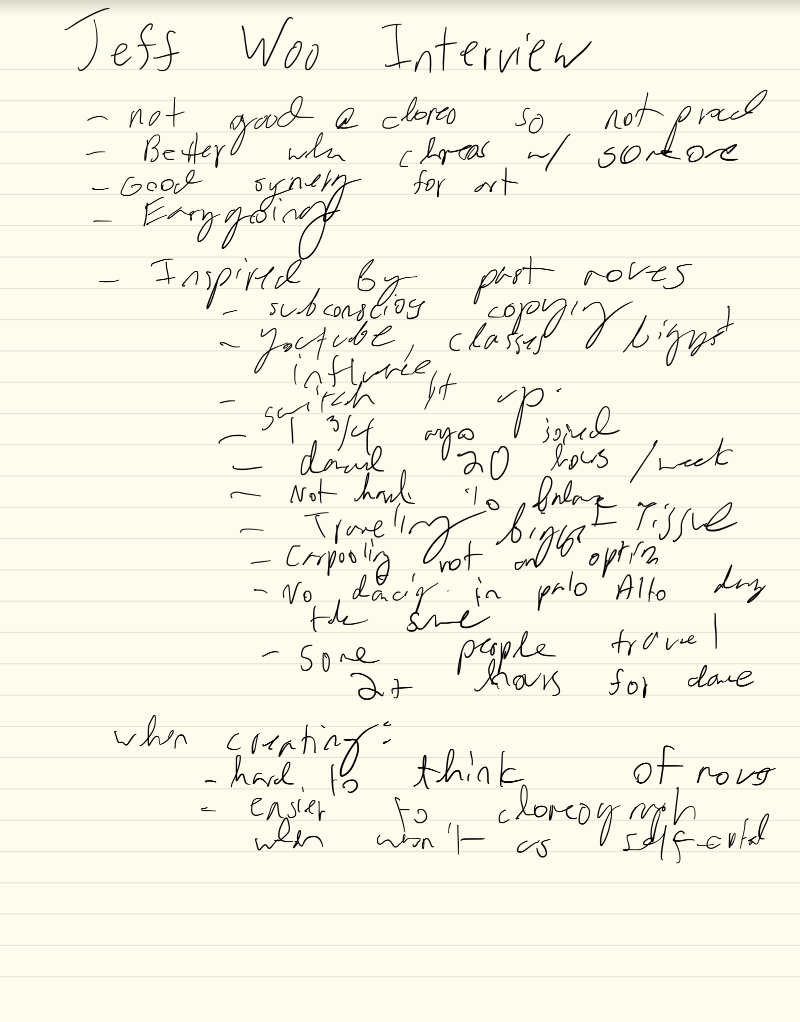 Jeff Woo Interview
- not good @ choreo so not proud
- Better when choreos w/ someone
- Good synergy for art
- Easygoing
- Inspired by past moves
- subconscious copying
- Youtube, classes biggest
influence
- switch it up.
- 1 3/4 ago joined
- dance 20 hours /week
- Not hard to balance
- Traveling biggest issue
- Carpooling not an option
- No dancing in palo Alto
the same
- Some people travel
2+ hours for dance
when creating:
- hard to think of moves
- easier to choreograph
when wasn't as self-critical